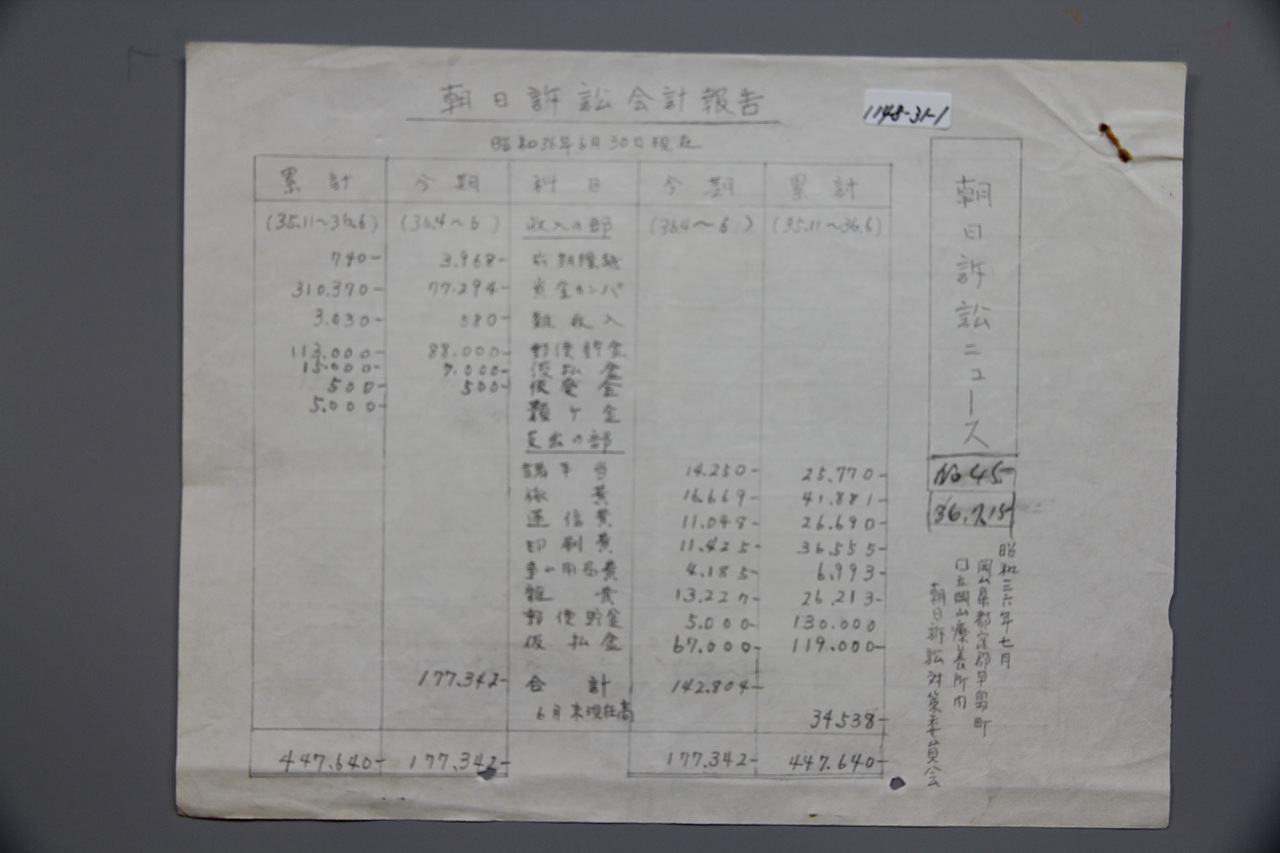 朝日訴訟会計報告
1148-31-1
昭和36年6月30日現在
累計 今期 科目 今期 累計
(35.11～36.6) (36.4～6) 収入の部 (36.4～6) (35.11～36.6)
740- 3.968- 前期繰越
310.370- 77.294- 資金カンパ
3.030- 580- 雑収入
113.000- 88.000- 郵便貯金
15.000- 7.000- 仮払金
500- 500- 仮受金
5.000- 預ケ金
支出の部
諸手当 14.250- 25.770-
旅費 16.669- 41.881-
通信費 11.048- 26.690-
印刷費 11.425- 36.555-
事ム用品費 4.185- 6.993-
雑費 13.227- 26.213-
郵便貯金 5.000- 130.000
仮払金 67.000- 119.000-
177.342- 合計 142.804-
6月末現在高 34538-
447.640- 177.342- 177.342- 447.640-
朝日訴訟ニュース
No45
36.7.15
昭和三六年七月
岡山県都窪郡早島町
口立岡山療養所内
朝日訴訟対策委員会